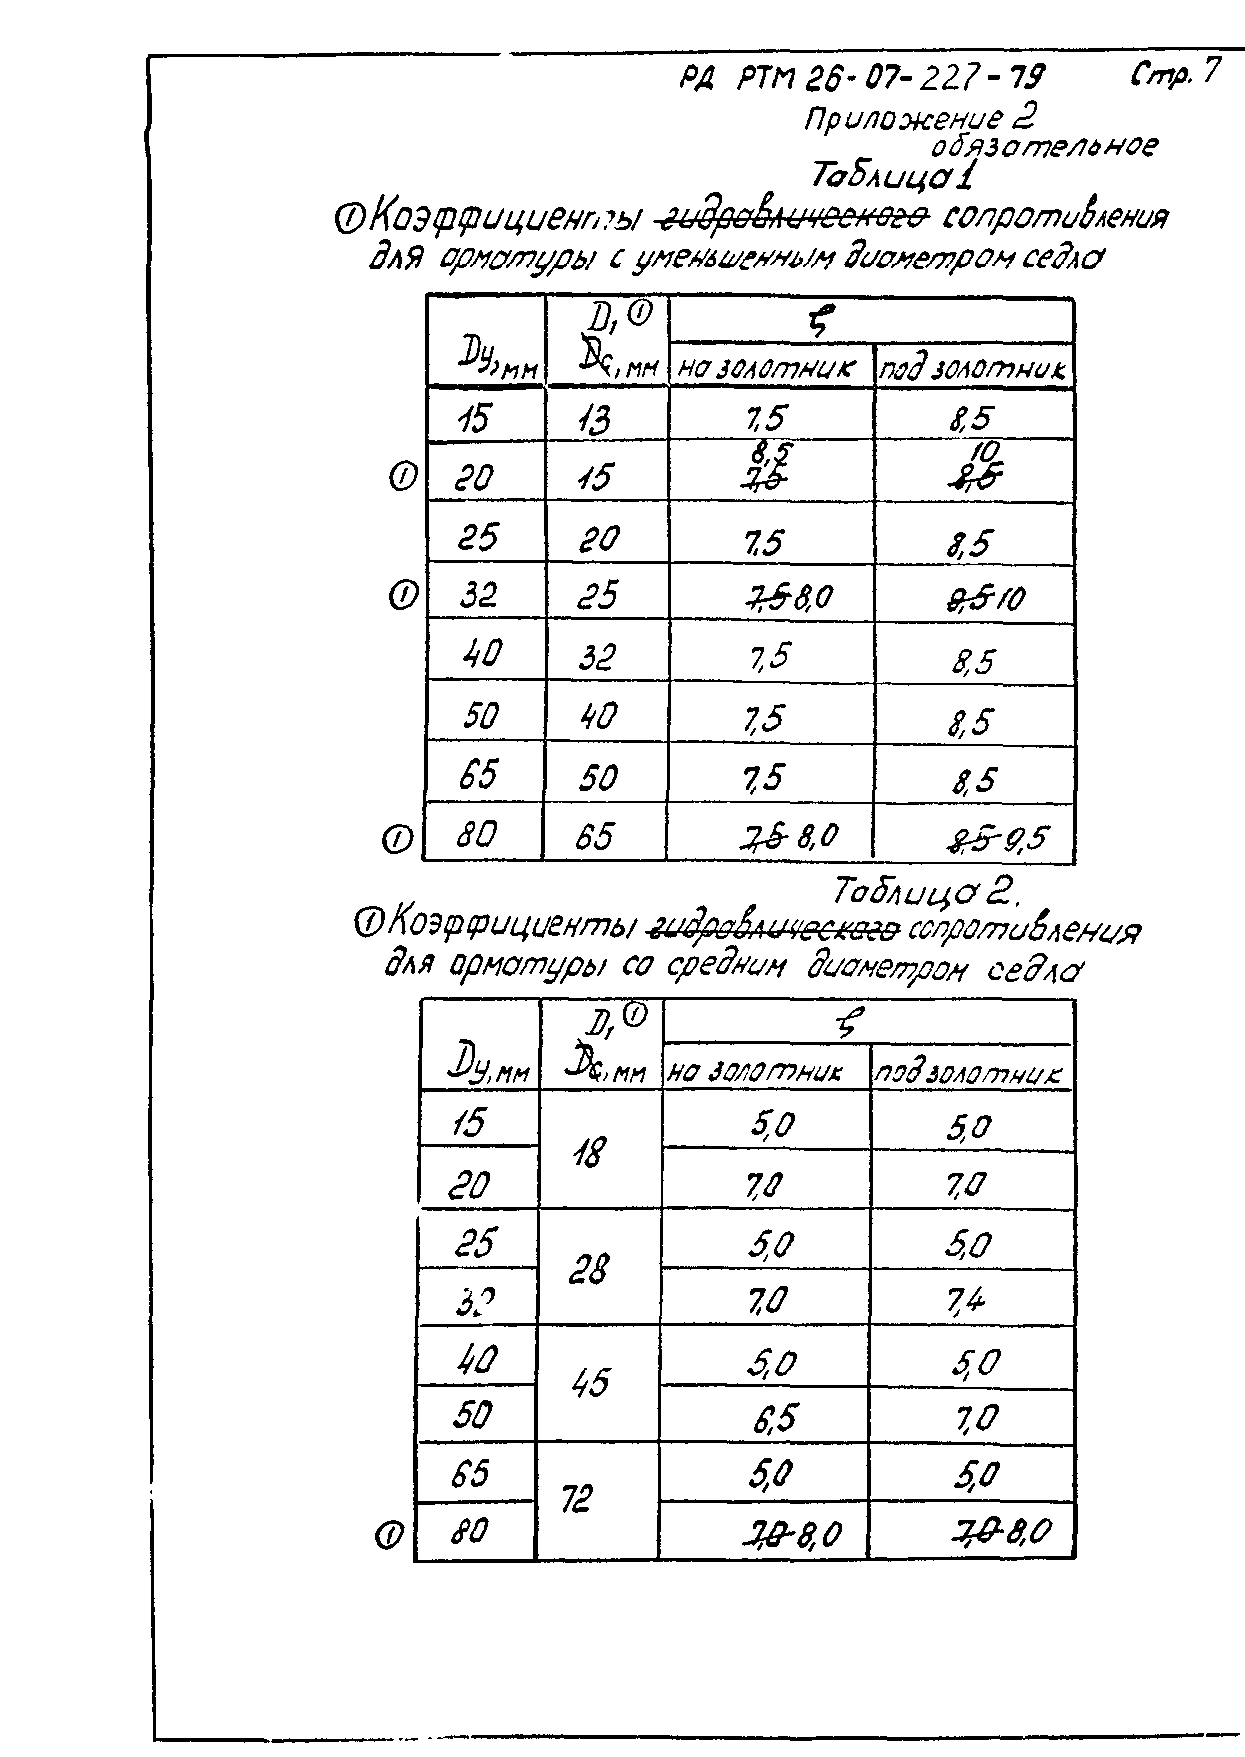 РД РТМ 26-07-227-79 Стр. 7
Приложение 2
обязательное
Таблица 1
① Коэффициенты гидравлического сопротивления
для арматуры с уменьшенным диаметром седла
D, ① ξ
Dу, мм Dс, мм на золотник под золотник
15 13 7,5 8,5
8,5 10
① 20 15 7,5 8,5
25 20 7,5 8,5
① 32 25 7,5 8,0 9,5 10
40 32 7,5 8,5
50 40 7,5 8,5
65 50 7,5 8,5
① 80 65 7,5 8,0 8,5 9,5
Таблица 2.
① Коэффициенты гидравлического сопротивления
для арматуры со средним диаметром седла
D, ① ξ
Dу, мм Dс, мм на золотник под золотник
15 5,0 5,0
18
20 7,0 7,0
25 5,0 5,0
28
32 7,0 7,4
40 5,0 5,0
45
50 6,5 7,0
65 5,0 5,0
72
① 80 7,0 8,0 7,0 8,0